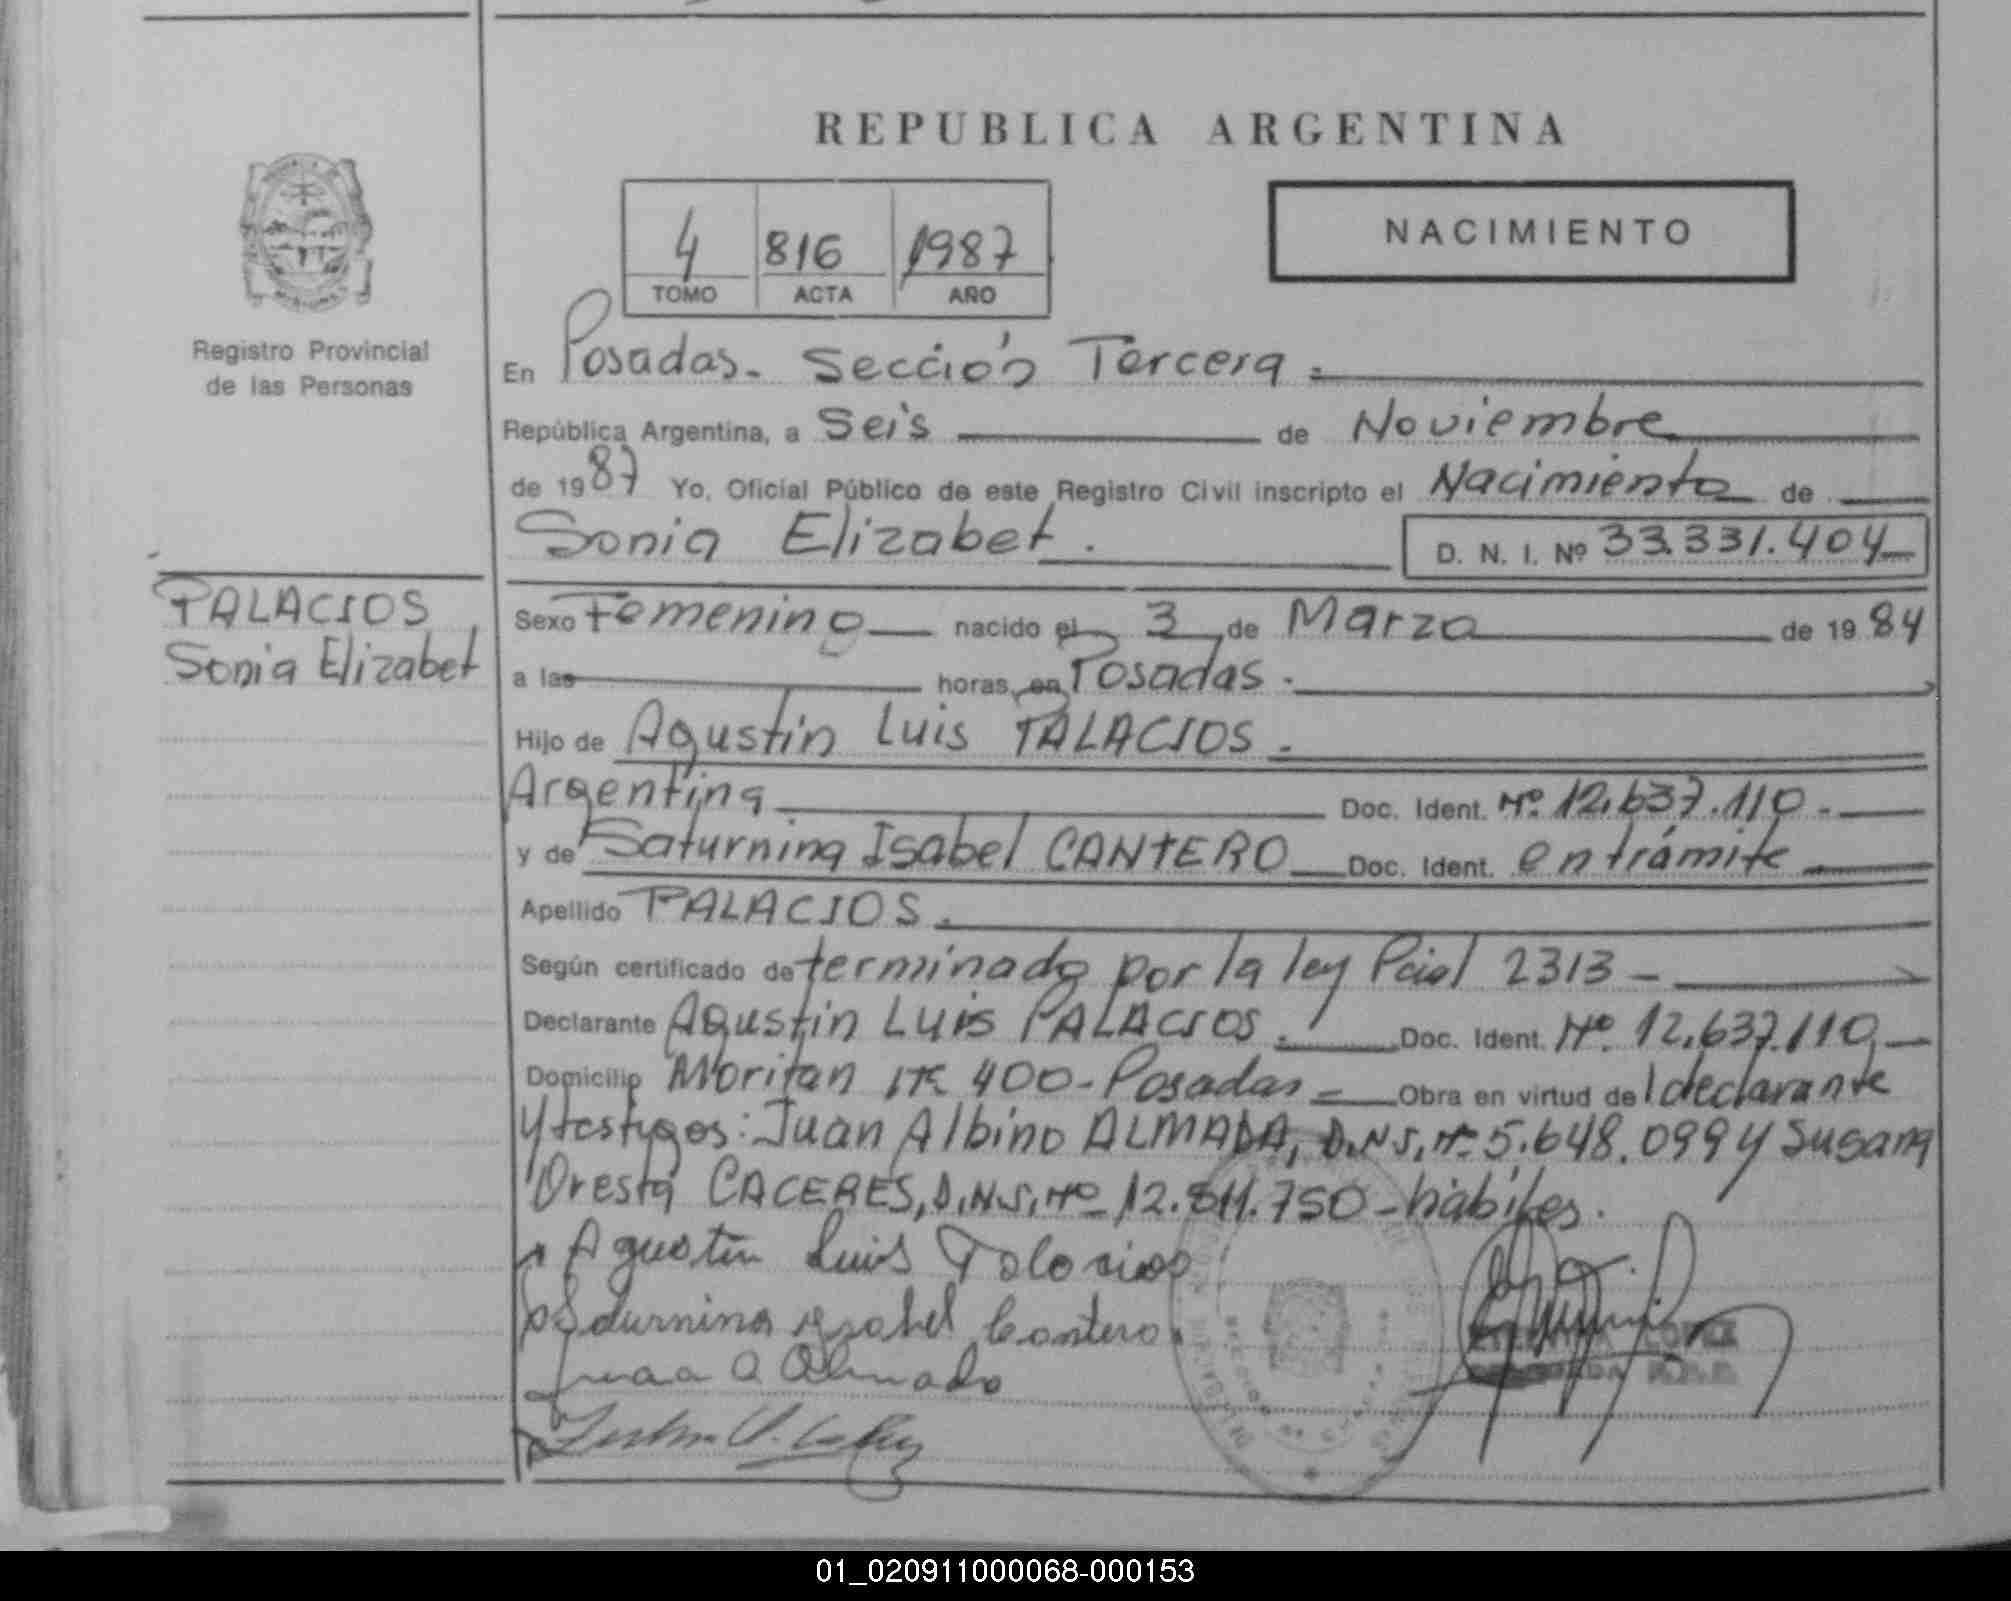 REPUBLICA ARGENTINA
4 816 1987
TOMO ACTA AÑO
NACIMIENTO
Registro Provincial
de las Personas
En Posadas. Sección Tercera.
República Argentina, a Seis de Noviembre
de 1987 Yo, Oficial Público de este Registro Civil inscripto el Nacimiento de
Sonia Elizabet. D. N. I. Nº 33.331.404
PALACIOS
Sonia Elizabet
Sexo Femenino nacido el 3 de Marzo de 1984
a las horas, en Posadas.
Hijo de Agustín Luis PALACIOS.
Argentina Doc. Ident. Nº 12.637.110.-
y de Saturnina Isabel CANTERO Doc. Ident. en trámite
Apellido PALACIOS.
Según certificado determinado por la ley Pcial 2313 -
Declarante Agustín Luis PALACIOS. Doc. Ident. Nº. 12.637.110
Domicilio 400- Posadas Obra en virtud del declarante
y testigos: Juan Albino ALMADA, D.N.I, Nº 5.648.099 y Susana
Oresta CACERES, D.N.I, Nº 12.811.750 - hábiles.
Agustin Luis Palacios
Saturnina Ysabel Cantero
Juan A Almada
01_020911000068-000153